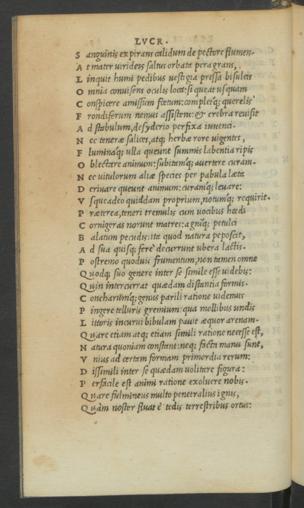 LVCR.
S anguinis expirans calidum de pectore flumen.
A t mater virideis saltus orbata peragrans,
L inquit humi pedibus uestigia pressa bisulcis
O mnia conuisens oculis loca: si queat usquam
C onspicere amissum fœtum: complerq; querelis
F rondiferum nemus assistens: & crebra reuisit
A d stabulum, desyderio perfixa iuuenci.
N ec teneræ salices, atq; herbæ rore uigentes,
F luminaq; ulla queunt summis labentia ripis
O blectare animum: subitamq; auertere curam.
N ec uitulorum aliæ species per pabula læta
D eriuare queunt animum: curamq; leuare:
V sque adeo quiddam proprium, notumq; requirit.
P ræterea, teneri tremulis cum uocibus hœdi
C ornigeras norunt matres: agniq; petulci
B alatum pecudes: ita quod natura poposcit,
A d sua quisq; fere decurrunt ubera lactis.
P ostremo quoduis frumentum, non tamen omne
Q uodq; suo genere inter se simile esse uidebis:
Q uin intercurrat quædam distantia formis.
C oncharumq; genus parili ratione uidemus
P ingere telluris gremium: qua mollibus undis
L ittoris incurui bibulam pauit æquor arenam.
Q uare etiam atq; etiam simili ratione necesse est,
N atura quoniam constant: neq; facta manu sunt,
V nius ad certam formam primordia rerum:
D issimili inter se quædam uolitare figura:
P erfacile est animi ratione exoluere nobis.
Q uare fulmineus multo penetralius ignis,
Q uàm noster fluat è tedis terrestribus ortus: